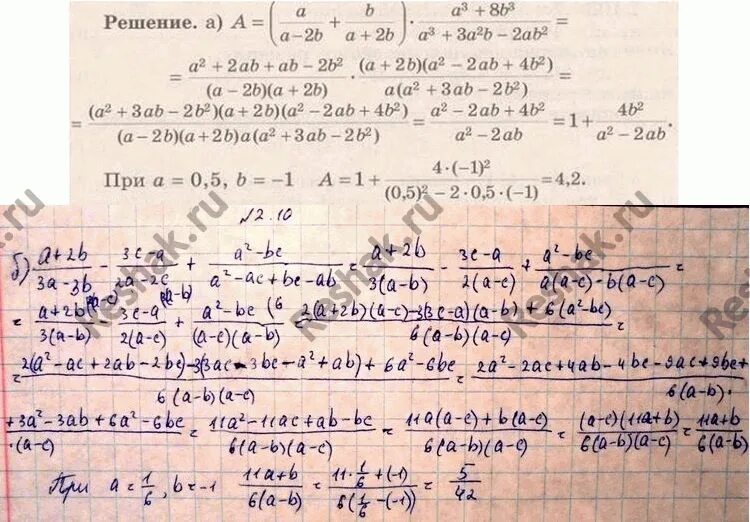 Решение. а) A = (a/(a−2b) + b/(a+2b)) · (a³+8b³)/(a³+3a²b−2ab²) =
= (a²+2ab+ab−2b²)/((a−2b)(a+2b)) · ((a+2b)(a²−2ab+4b²))/(a(a²+3ab−2b²)) =
= ((a²+3ab−2b²)(a+2b)(a²−2ab+4b²))/((a−2b)(a+2b)a(a²+3ab−2b²)) = (a²−2ab+4b²)/(a²−2ab) = 1 + 4b²/(a²−2ab).
При a = 0,5, b = −1 A = 1 + (4·(−1)²)/((0,5)²−2·0,5·(−1)) = 4,2.
№2.10
б) (a+2b)/(3a−3b) − (3c−a)/(2a−2c) + (a²−bc)/(a²−ac+bc−ab) = (a+2b)/(3(a−b)) − (3c−a)/(2(a−c)) + (a²−bc)/(a(a−c)−b(a−c)) =
= (a+2b)/(3(a−b)) − (3c−a)/(2(a−c)) + (a²−bc)/((a−c)(a−b)) = (2(a+2b)(a−c)−3(3c−a)(a−b)+6(a²−bc))/(6(a−b)(a−c)) =
= (2(a²−ac+2ab−2bc)−3(3ac−3bc−a²+ab)+6a²−6bc)/(6(a−b)(a−c)) = (2a²−2ac+4ab−4bc−9ac+9bc+)/(6(a−b)·)
(+3a²−3ab+6a²−6bc)/(·(a−c)) = (11a²−11ac+ab−bc)/(6(a−b)(a−c)) = (11a(a−c)+b(a−c))/(6(a−b)(a−c)) = ((a−c)(11a+b))/(6(a−b)(a−c)) = (11a+b)/(6(a−b))
При a = 1/6, b = −1 (11a+b)/(6(a−b)) = (11·1/6+(−1))/(6(1/6−(−1))) = 5/42
Reshak.ru
Reshak.ru
Reshak.ru